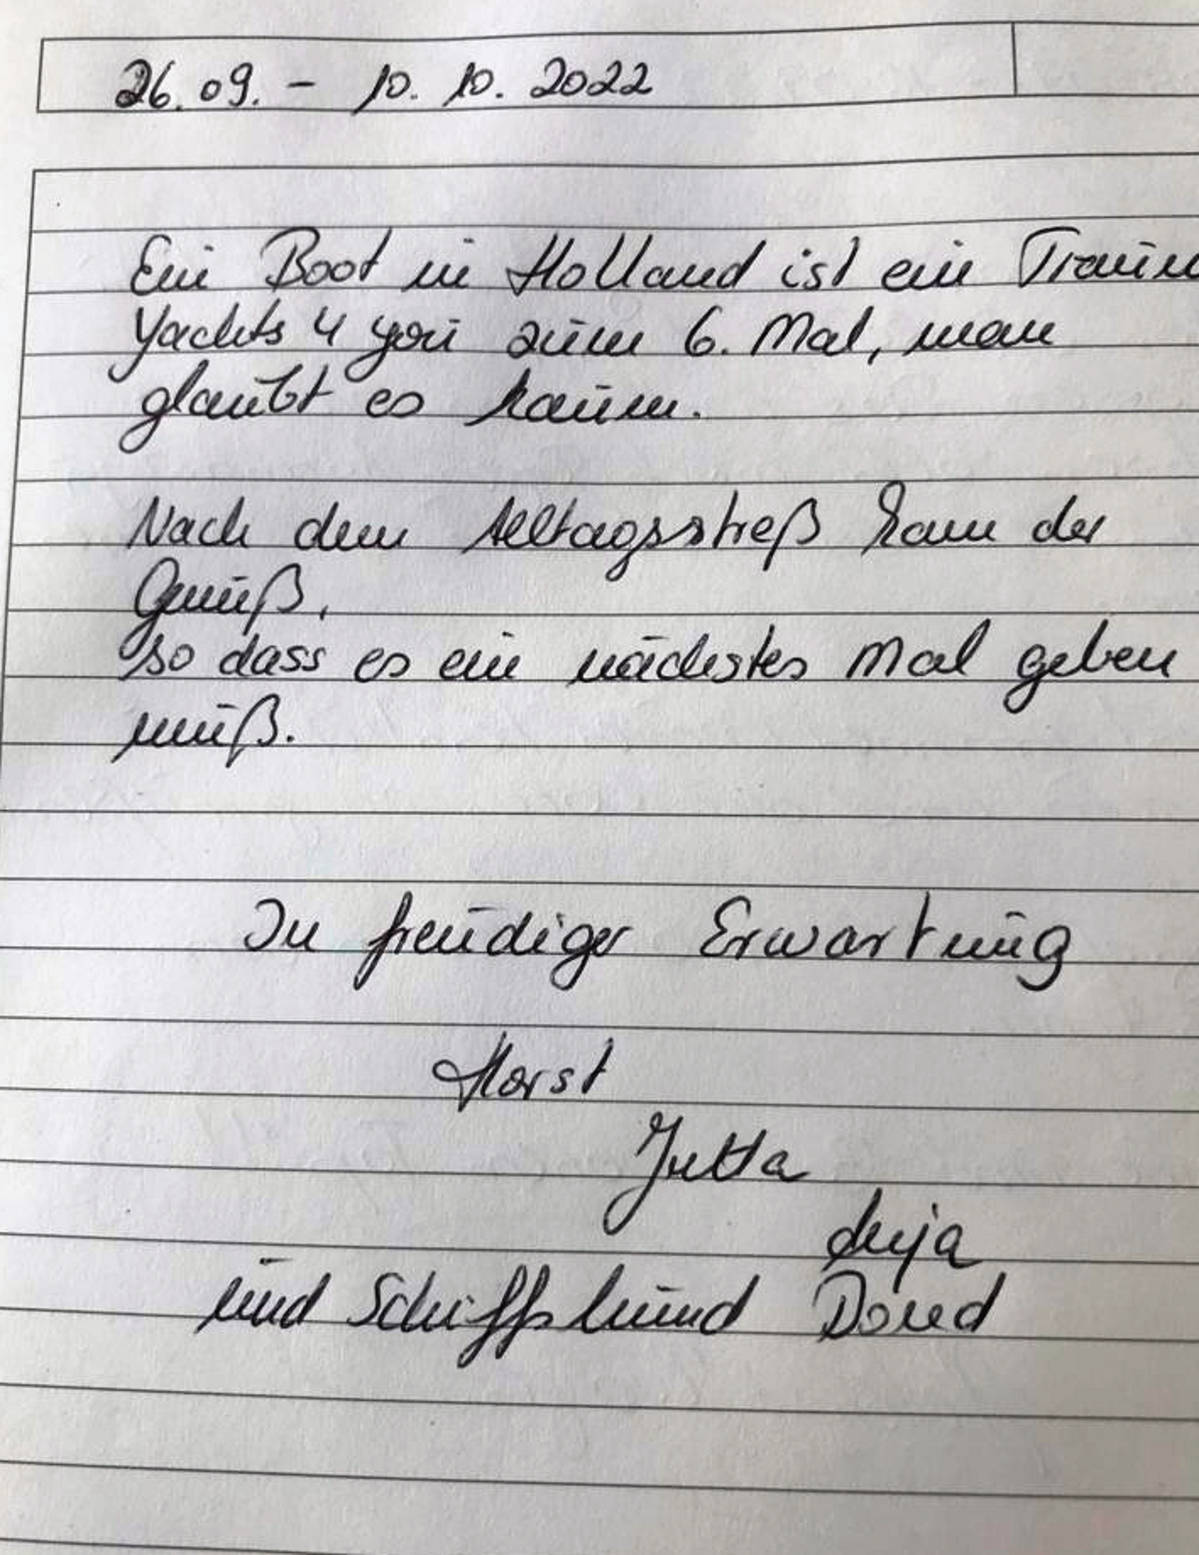 26.09. - 10.10.2022
Ein Boot in Holland ist ein Traum
Yachts 4 you zum 6. Mal, man
glaubt es kaum.
Nach dem Alltagsstreß kam der
Genuß,
so dass es ein nächstes Mal geben
muß.
In freudiger Erwartung
Horst
Jutta
Anja
und Schiffshund